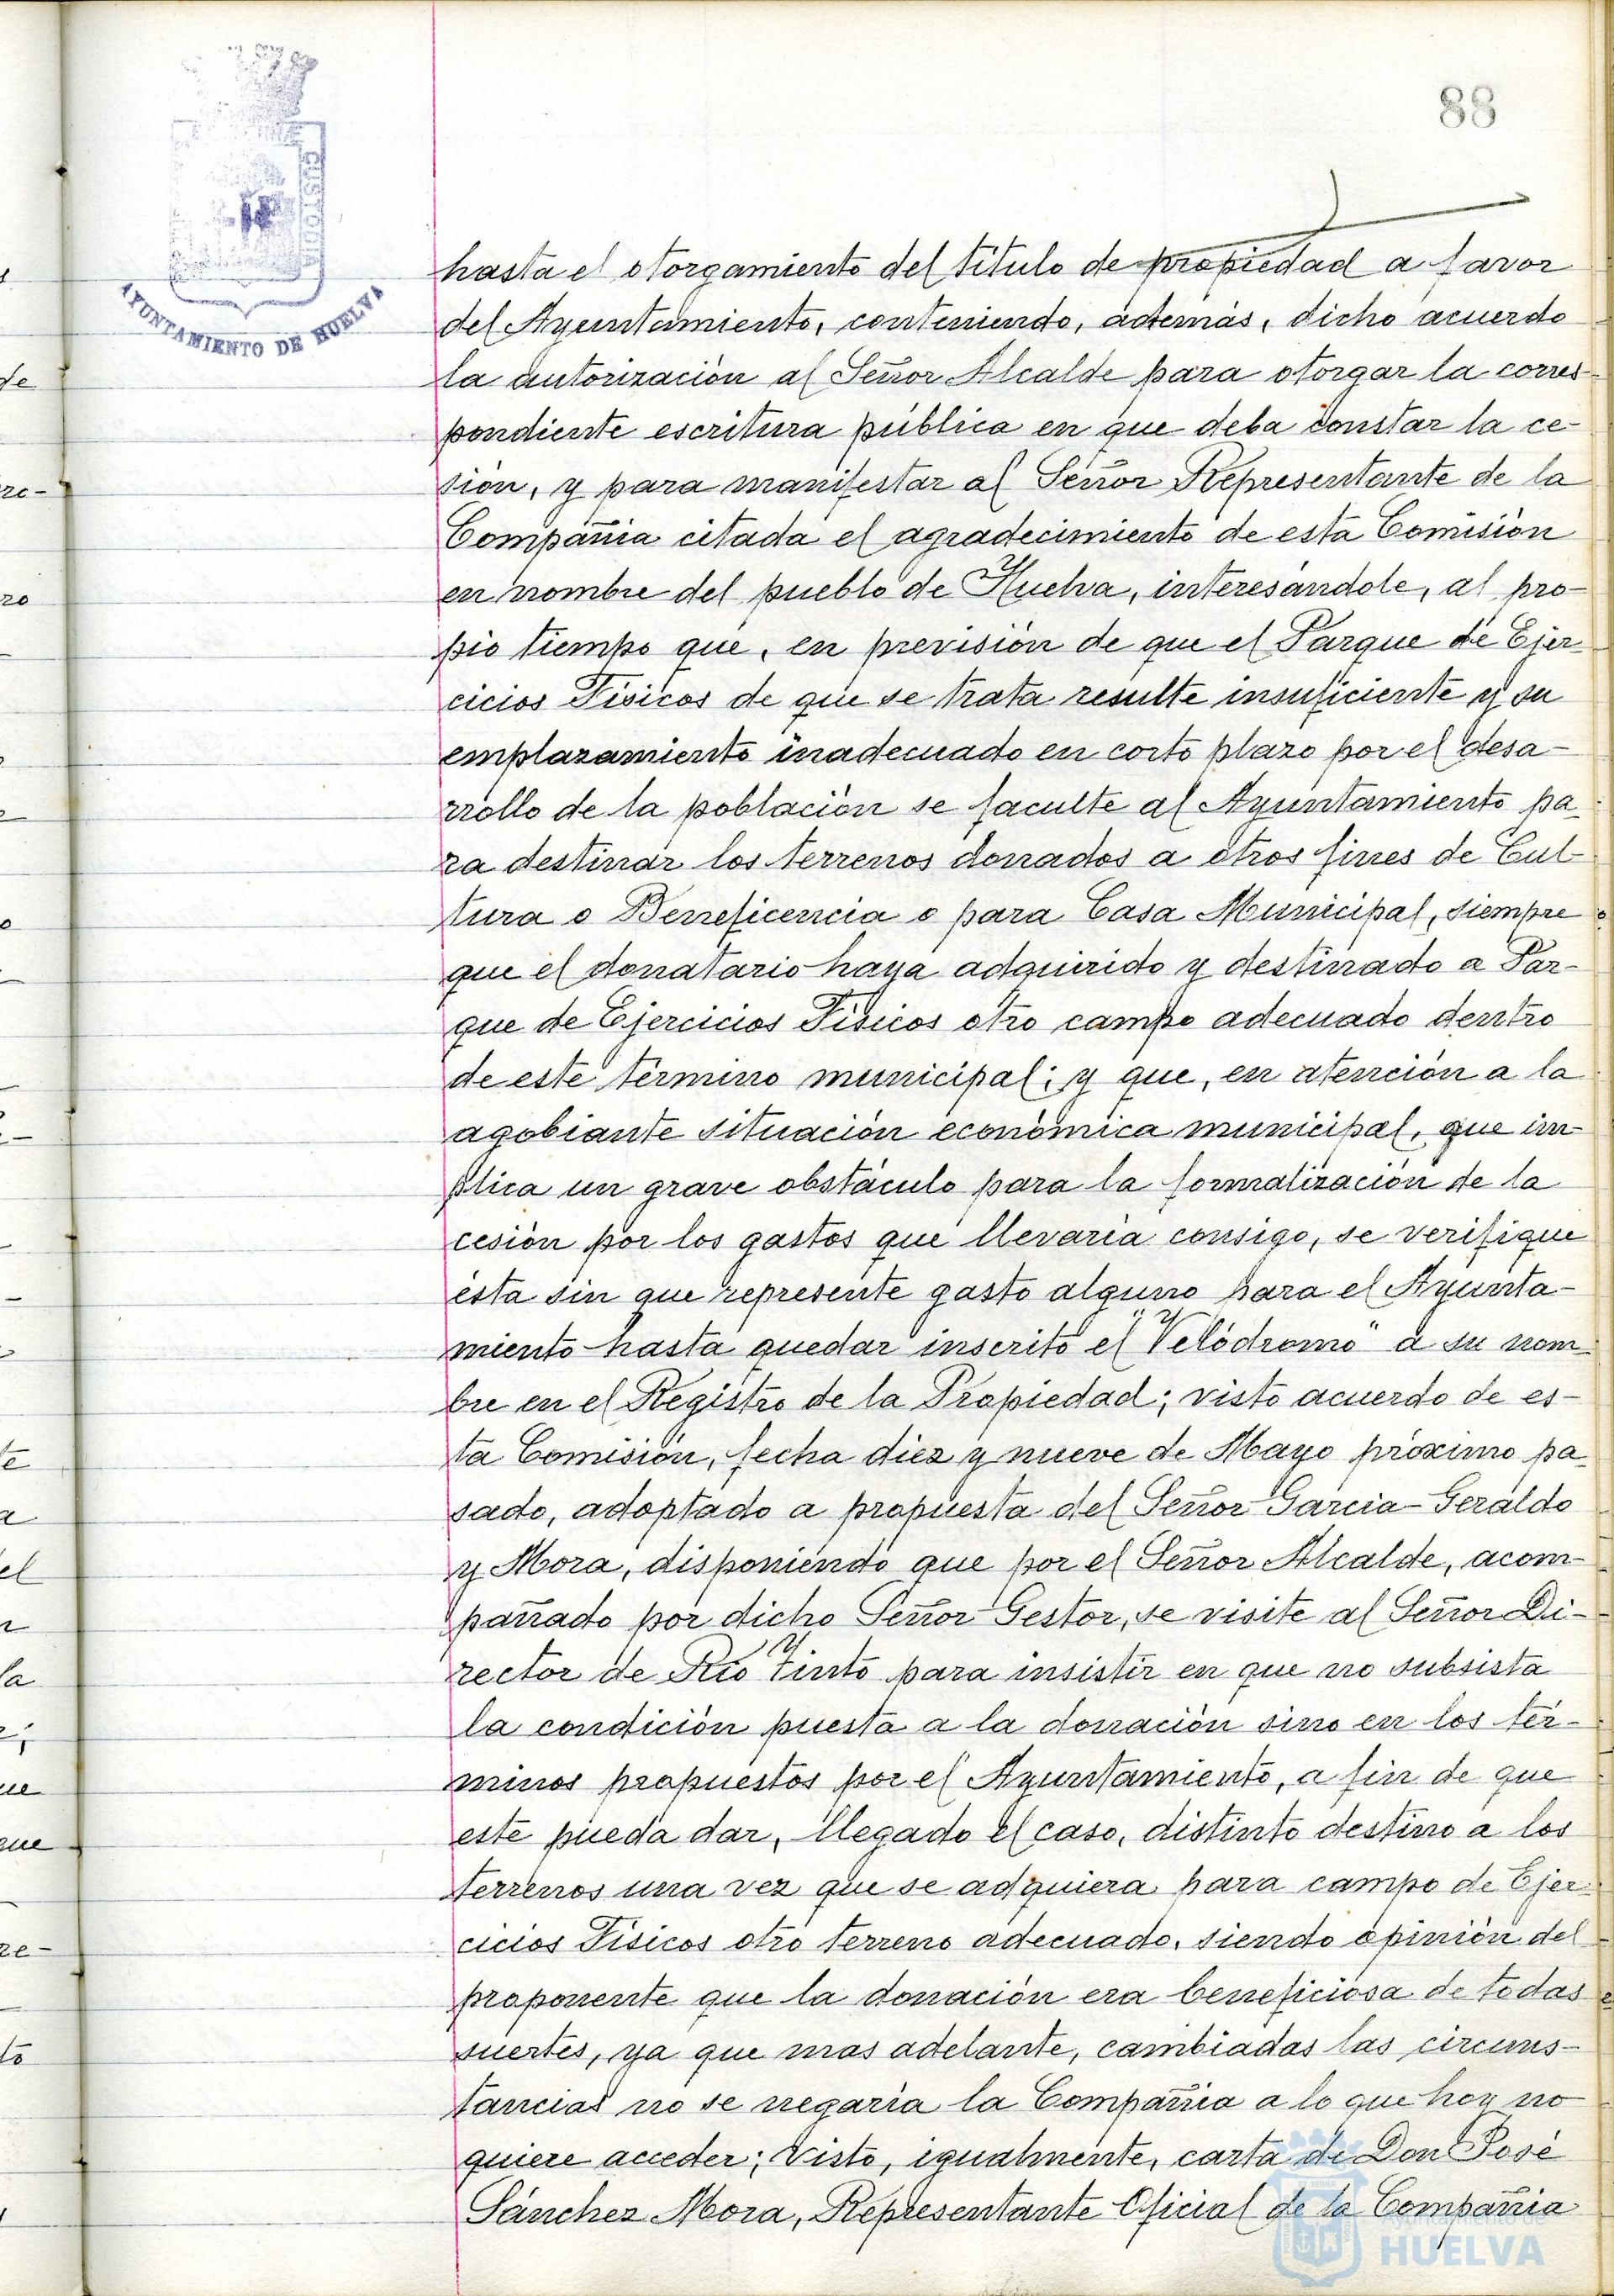 88
CUSTODIT
AYUNTAMIENTO DE HUELVA
hasta el otorgamiento del título de propiedad a favor
del Ayuntamiento, conteniendo, además, dicho acuerdo
la autorización al Señor Alcalde para otorgar la corres-
pondiente escritura pública en que deba constar la ce-
sión, y para manifestar al Señor Representante de la
Compañia citada el agradecimiento de esta Comisión
en nombre del pueblo de Huelva, interesándole, al pro-
pio tiempo que, en previsión de que el Parque de Ejer-
cicios Físicos de que se trata resulte insuficiente y su
emplazamiento inadecuado en corto plazo por el desa-
rrollo de la población se faculte al Ayuntamiento pa-
ra destinar los terrenos donados a otros fines de Cul-
tura o Beneficencia o para Casa Municipal, siempre
que el donatario haya adquirido y destinado a Par-
que de Ejercicios Físicos otro campo adecuado dentro
de este término municipal; y que, en atención a la
agobiante situación económica municipal, que im-
plica un grave obstáculo para la formalización de la
cesión por los gastos que llevaría consigo, se verifique
ésta sin que represente gasto alguno para el Ayunta-
miento hasta quedar inscrito el "Velódromo" a su nom-
bre en el Registro de la Propiedad; visto acuerdo de es-
ta Comisión, fecha diez y nueve de Mayo próximo pa-
sado, adoptado a propuesta del Señor García-Geraldo
y Mora, disponiendo que por el Señor Alcalde, acom-
pañado por dicho Señor Gestor, se visite al Señor Di-
rector de Río Tinto para insistir en que no subsista
la condición puesta a la donación sino en los tér-
minos propuestos por el Ayuntamiento, a fin de que
este pueda dar, llegado el caso, distinto destino a los
terrenos una vez que se adquiera para campo de Ejer-
cicios Físicos otro terreno adecuado, siendo opinión del
proponente que la donación era beneficiosa de todas
suertes, ya que mas adelante, cambiadas las circuns-
tancias no se negaría la Compañia a lo que hoy no
quiere acceder; Visto, igualmente, carta de Don José
Sánchez Mora, Representante Oficial de la Compañia
Ayuntamiento de
HUELVA